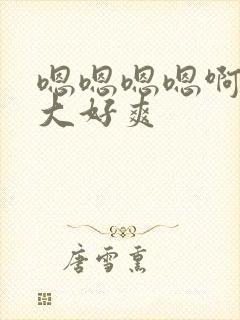 嗯嗯嗯嗯啊
大好爽
唐雪熏